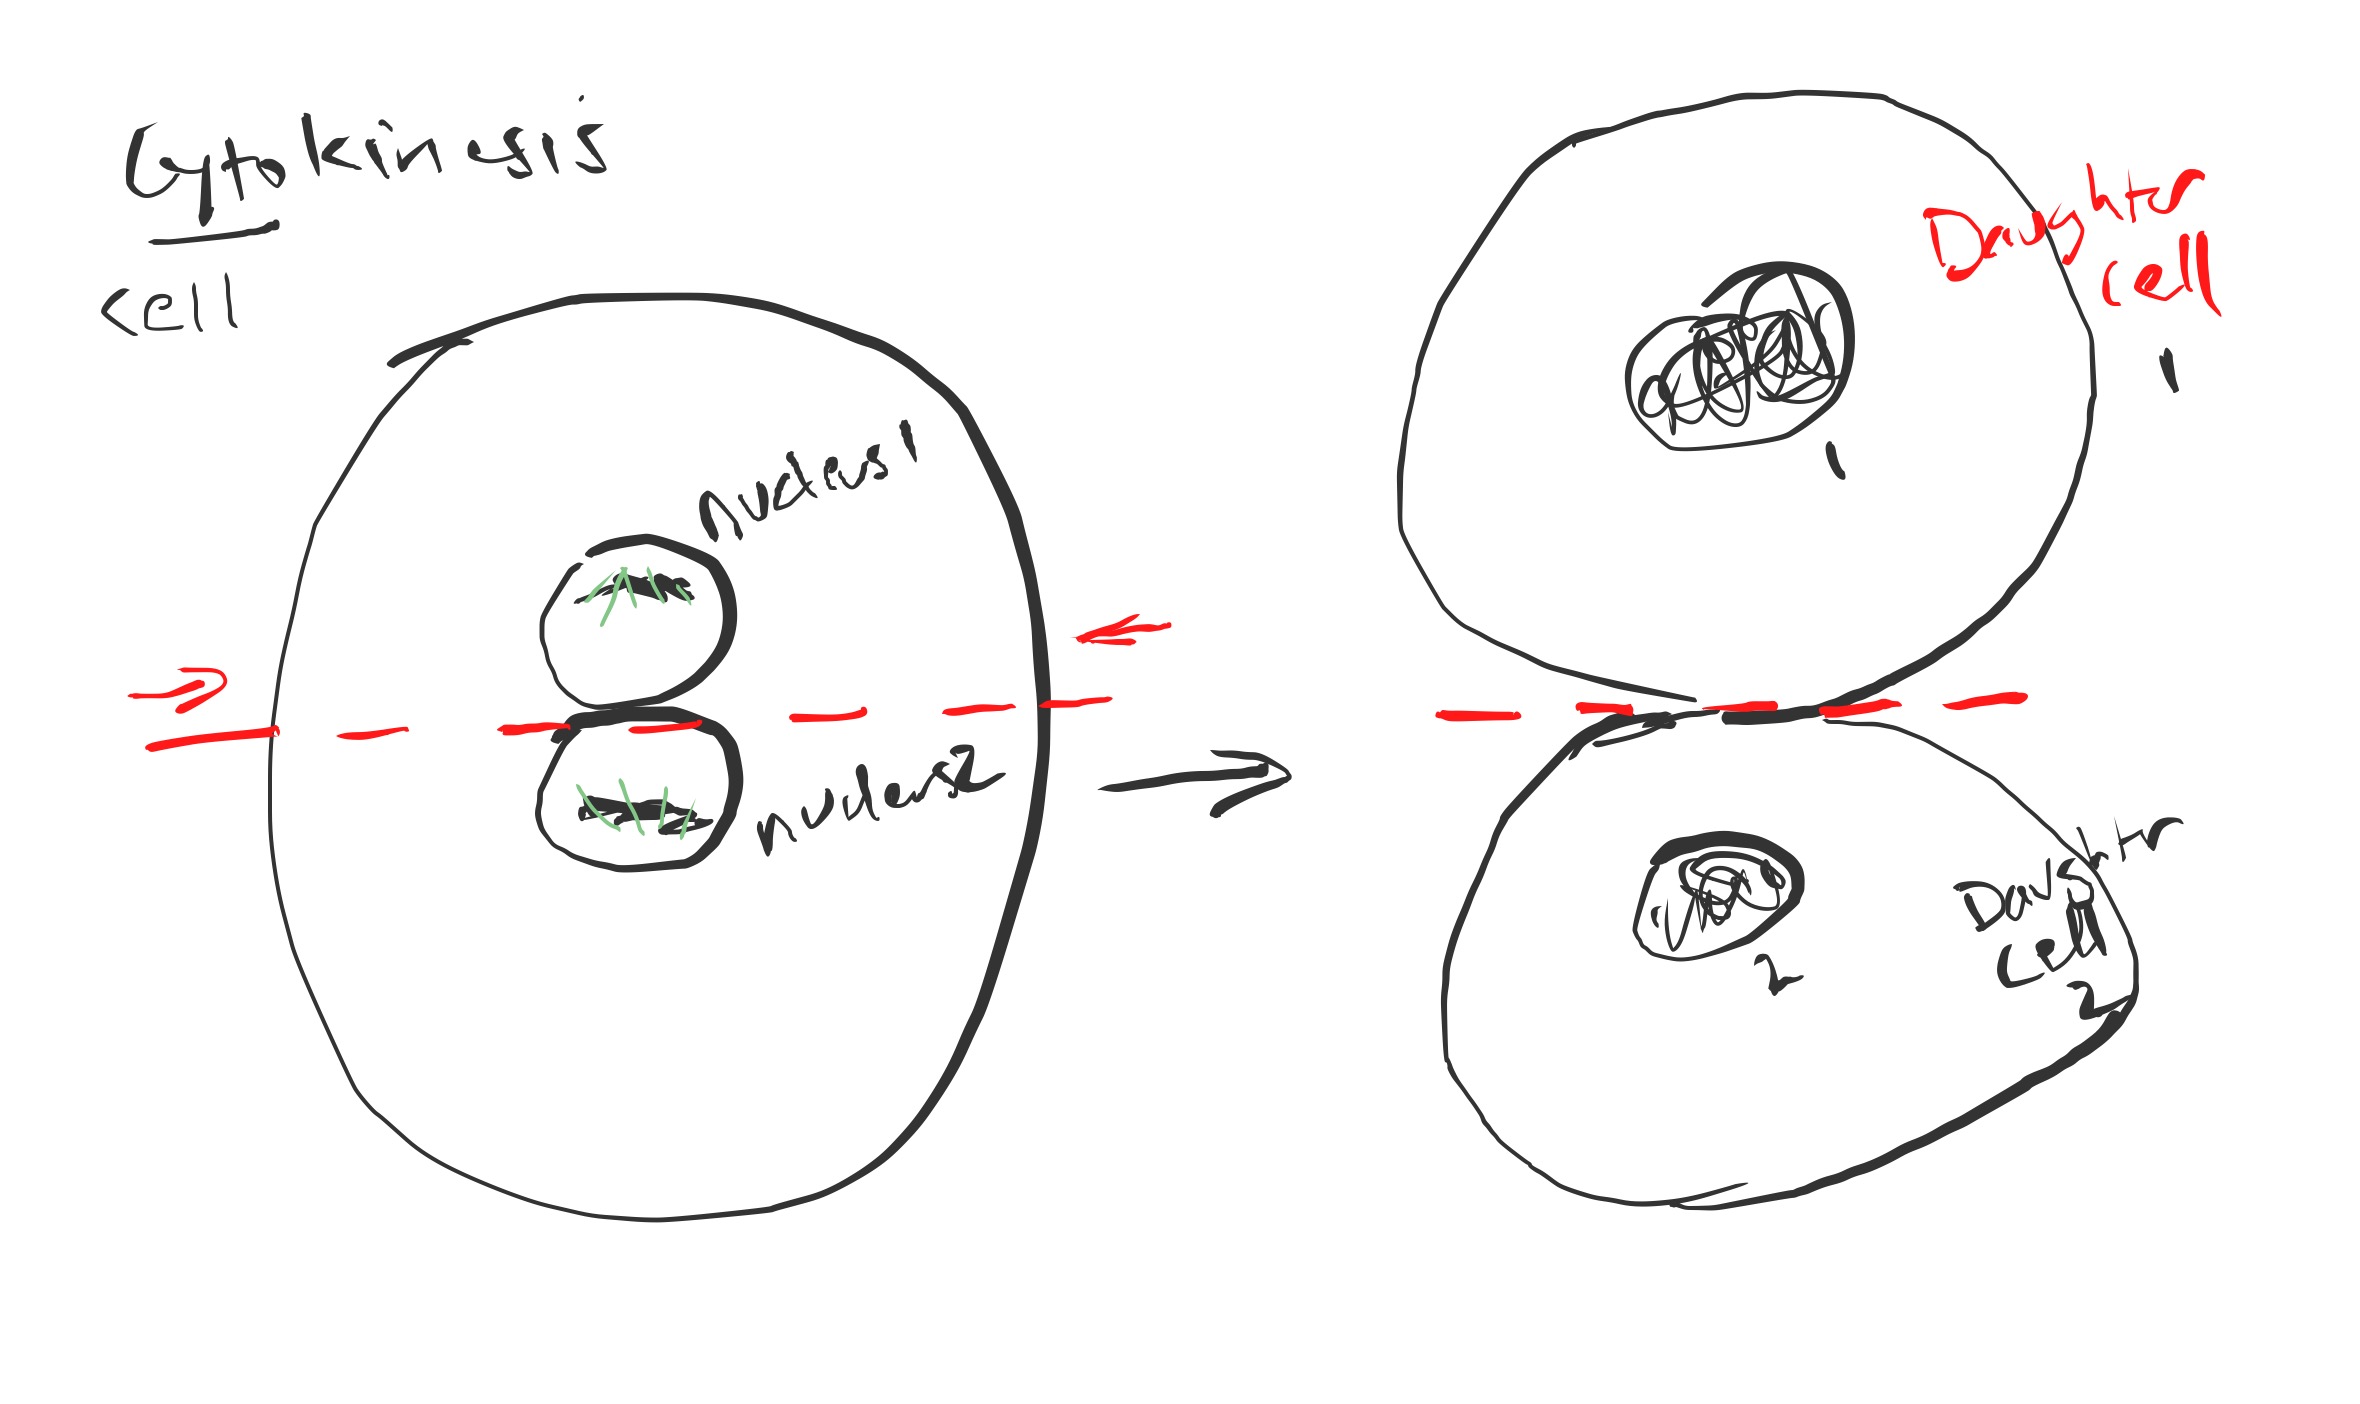 Cytokinesis
cell
Nucleus 1
nucleus 2
Daughtr
cell
1
1
2
Daughtr
cell
2